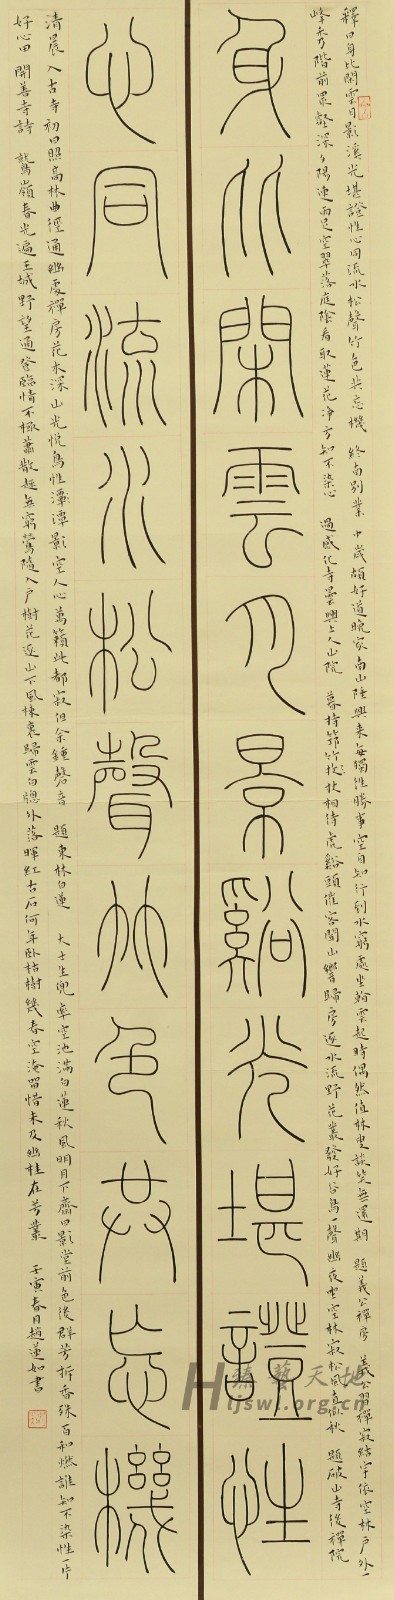 釋曰身比閑雲月影溪光堪證性心同流水松聲竹色共忘機 終南別業 中歲頗好道晚家南山陲興來每獨往勝事空自知行到水窮處坐看雲起時偶然值林叟談笑無還期 題義公禪房 義公習禪寂結宇依空林戶外一
峰秀階前眾壑深夕陽連雨足空翠落庭陰看取蓮花淨方知不染心 過感化寺曇興上人山院 暮持筇竹杖相待虎谿頭催客聞山響歸房逐水流野花叢發好谷鳥一聲幽夜坐空林寂松風直似秋 題破山寺後禪院
身比閑雲月景谿光堪證性
心同流水松聲竹色共忘機
清晨入古寺初日照高林曲徑通幽處禪房花木深山光悅鳥性潭潭影空人心萬籟此都寂但余鍾磬音 題東林白蓮 大士生兜率空池滿白蓮秋風明月下齋日影堂前色後群芳拆香殊百和燃誰知不染性一片
好心田 開善寺詩 鷲嶺春光遍王城野望通登臨情不極蕭散趣無窮鶯隨入戶樹花逐山下風棟裏歸雲白窗外落暉紅古石何年臥枯樹幾春空淹留惜未及幽桂在芳叢 壬寅春月趙蓮如書
臻藝天地